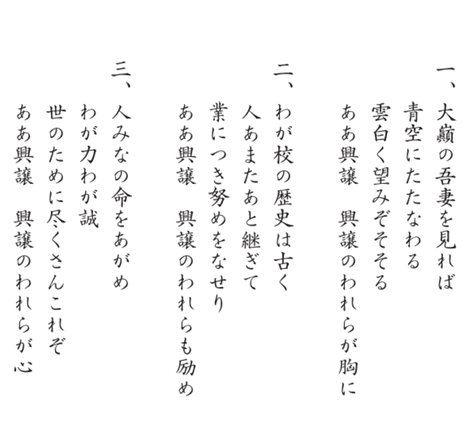 一、大巓の吾妻を見れば
青空にたたなわる
雲白く望みぞそそる
ああ興譲　興譲のわれらが胸に
二、わが校の歴史は古く
人あまたあと継ぎて
業につき努めをなせり
ああ興譲　興譲のわれらも励め
三、人みなの命をあがめ
わが力わが誠
世のために尽くさんこれぞ
ああ興譲　興譲のわれらが心